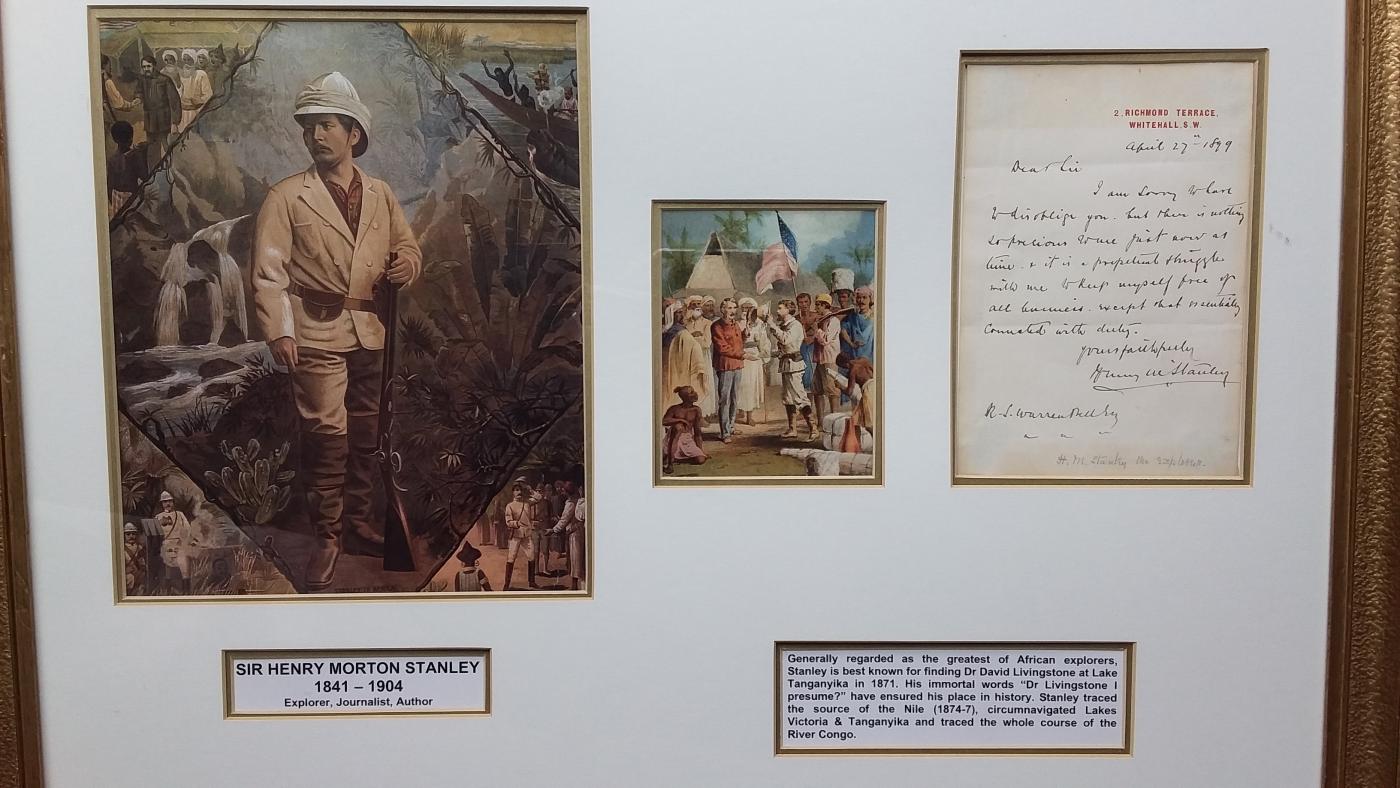 2, RICHMOND TERRACE,
WHITEHALL, S.W.
April 27th 1899
Dear Sir
I am sorry to have
to disoblige you. but there is nothing
so precious to me just now as
time. & it is a perpetual struggle
with me to keep myself free of
all business. except that essentially
connected with duty.
Yours faithfully
Henry M Stanley
R. S. Warren Bell Esq
H. M. Stanley the Explorer.
SIR HENRY MORTON STANLEY
1841 – 1904
Explorer, Journalist, Author
Generally regarded as the greatest of African explorers,
Stanley is best known for finding Dr David Livingstone at Lake
Tanganyika in 1871. His immortal words “Dr Livingstone I
presume?” have ensured his place in history. Stanley traced
the source of the Nile (1874-7), circumnavigated Lakes
Victoria & Tanganyika and traced the whole course of the
River Congo.